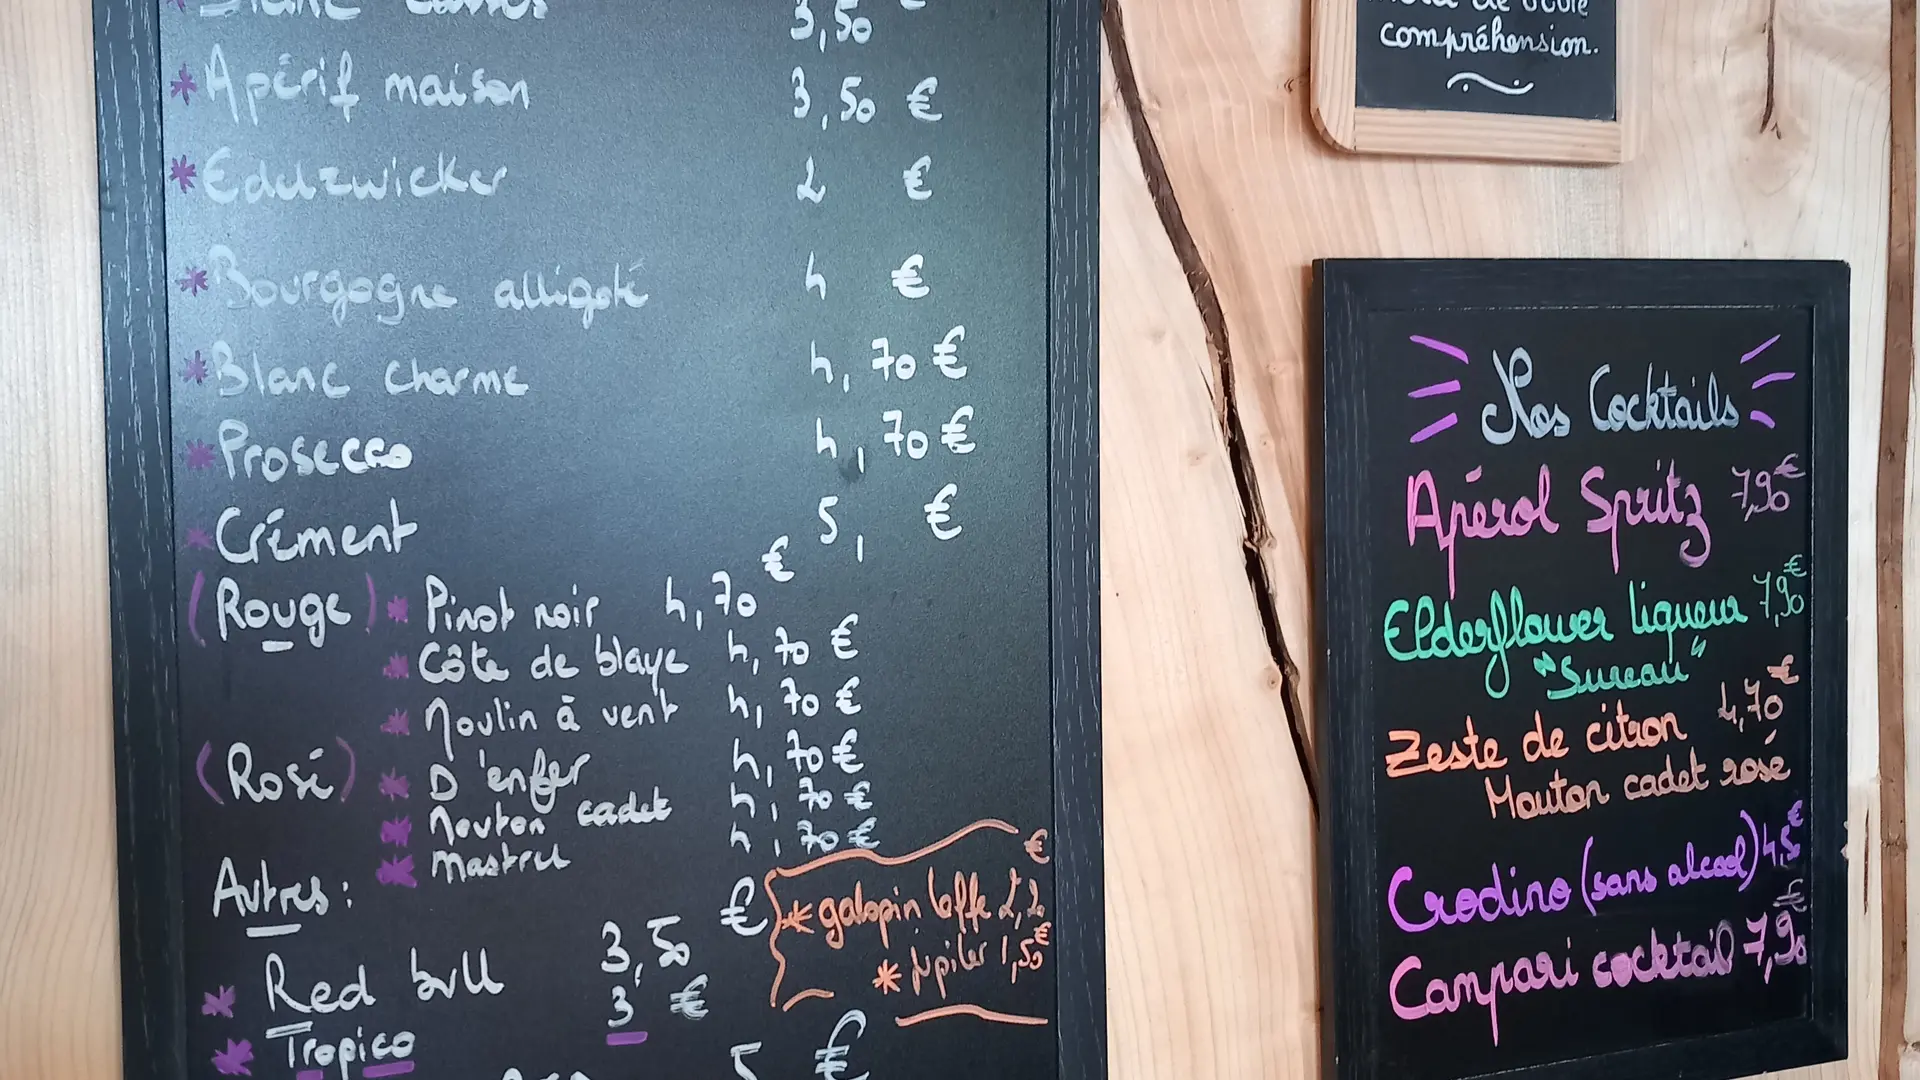 Blanc cassis 3,50 €
* Apérif maison 3,50 €
* Edelzwicker 2 €
* Bourgogne alligoté 4 €
* Blanc charme 4,70 €
* Prosecco 4,70 €
* Crément 5, €
(Rouge) * Pinot noir 4,70 €
* Côte de blaye 4,70 €
* Moulin à vent 4,70 €
(Rosé) * D'enfer 4,70 €
* Mouton cadet 4,70 €
* Mastrel 4,70 €
Autres :
* Red bull 3,50 €
* Tropico 3 €
5 €
* galopin leffe 2,20 €
* jupiler 1,50 €
de votre
compréhension.
Nos Cocktails
Apérol Spritz 7,90 €
Elderflower liqueur 7,90 €
"Sureau"
Zeste de citron 4,70 €
Mouton cadet rosé
Crodino (sans alcool) 4,50 €
Campari cocktail 7,90 €